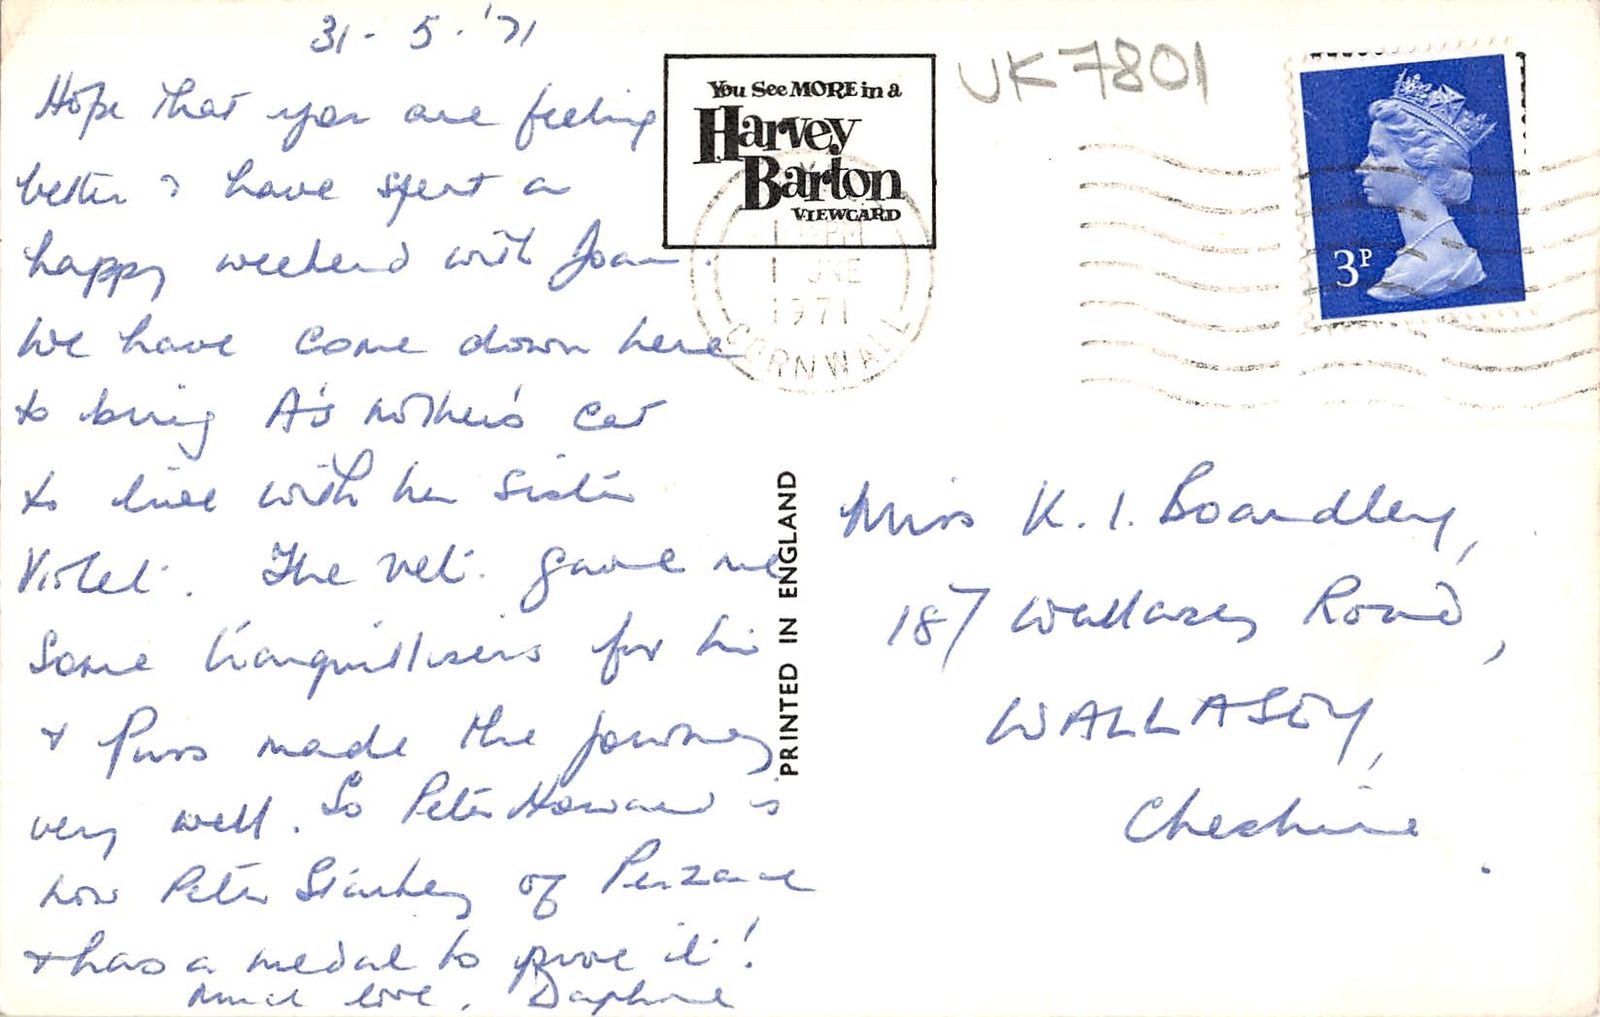 31 - 5 - '71
Hope that you are feeling
better & have spent a
happy weekend with Joan.
We have come down here
to bring A's mother's cat
to live with her sister
Violet. The vet. gave me
some tranquillisers for him
& Puss made the journey
very well. So Peter Howard is
now Peter Starkey of Penzance
& has a medal to prove it!
Much love, Daphne
You See MORE in a
Harvey
Barton
VIEWCARD
PM
1 JUNE
1971
CORNWALL
UK7801
3P
PRINTED IN ENGLAND
Miss K. I. Boardley,
187 Wallasey Road,
WALLASEY,
Cheshire.